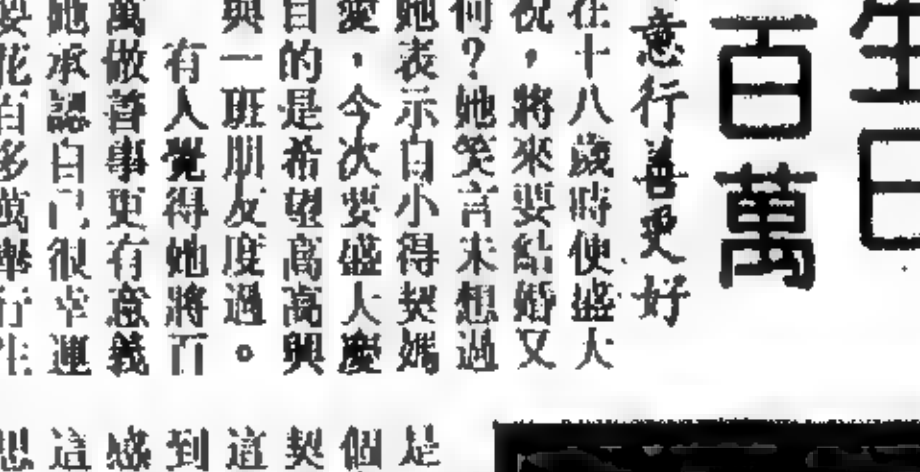 生日
百萬
意行善更好
在十八歲時便盛大
祝,將來要結婚又
何?她笑言未想過
她表示自小得契媽
愛,今次要盛大慶
目的是希望高高興
與一班朋友度過。
有人覺得她將百
萬做善事更有意義
她承認自己很幸運
要花百多萬舉行生
是
個
契
這
到
感
這
想